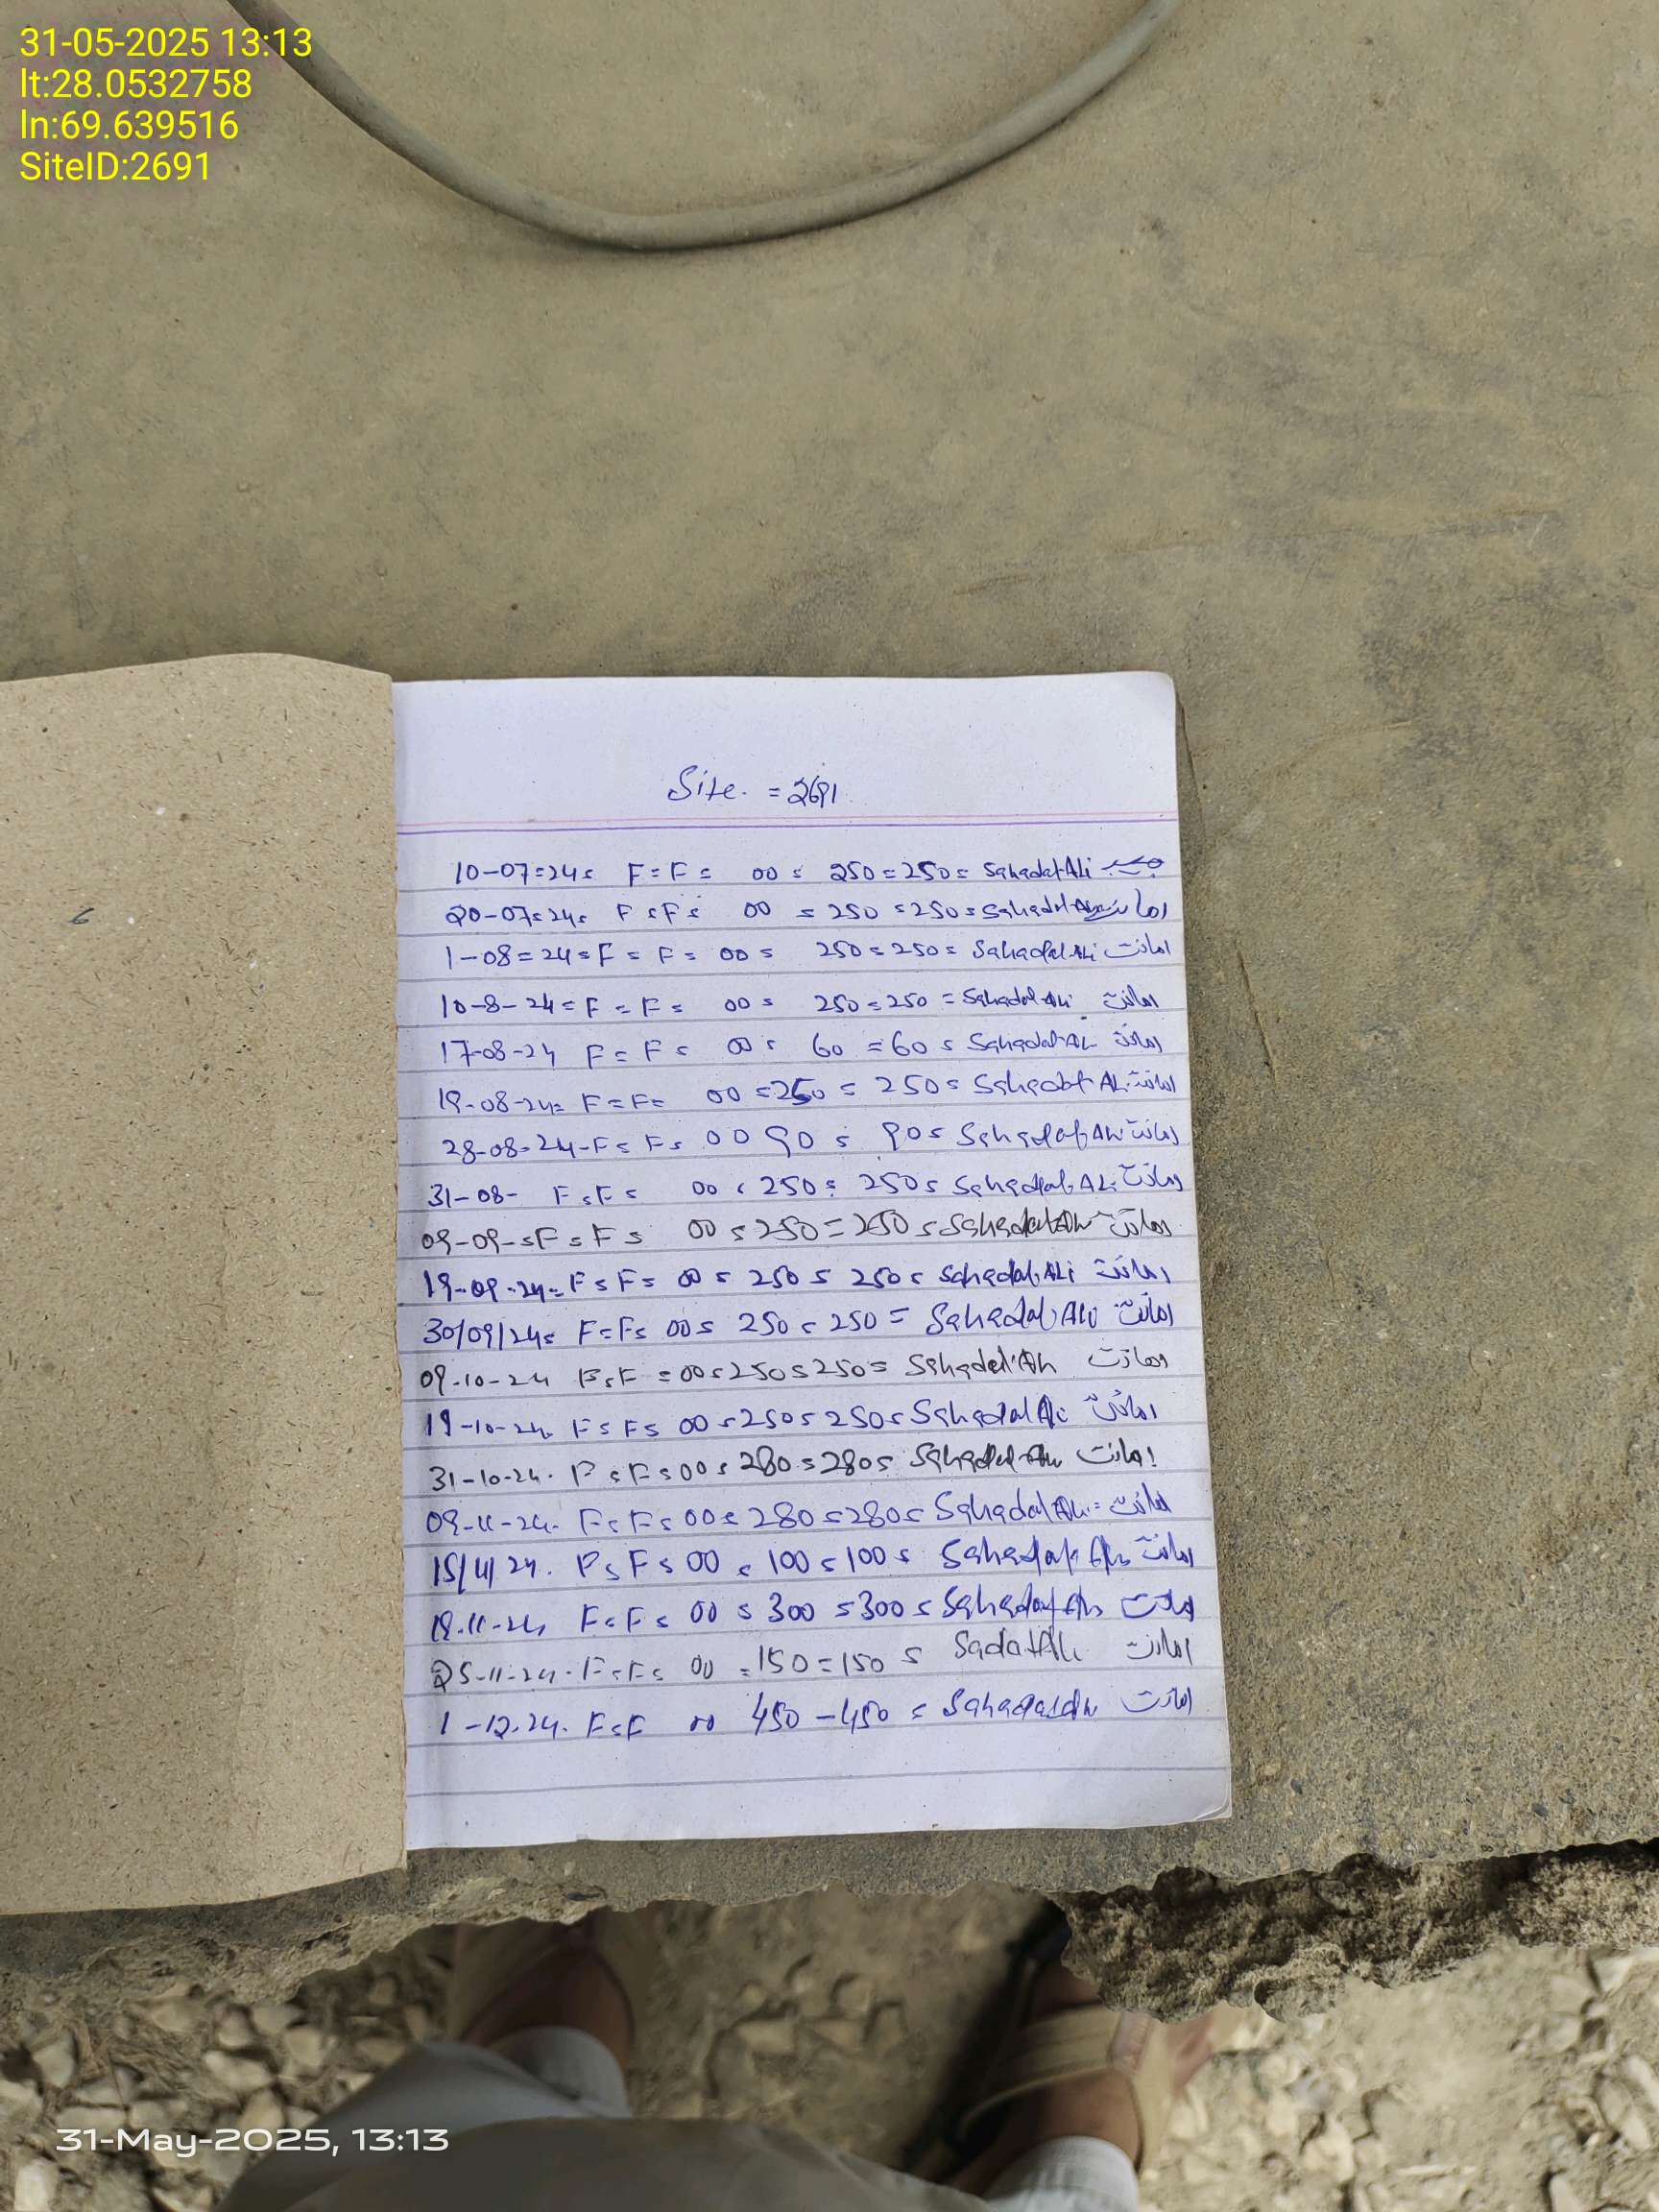 31-05-2025 13:13
lt:28.0532758
ln:69.639516
SiteID:2691
Site. = 2691
10-07=24= F=F= 00 = 250=250= Sahadat Ali
20-07=24= F=F= 00 = 250=250= Sahadat Ali امانت
1-08=24=F=F= 00= 250=250= Sahadat Ali امانت
10-8-24=F=F= 00= 250=250 = Sahadat Ali امانت
17-08-24 F=F= 00= 60=60= Sahadat Ali امانت
19-08-24= F=F= 00=250= 250= Sahadat Ali امانت
28-08-24-F=F= 00 90= 90= Sahadat Ali امانت
31-08- F=F= 00=250= 250= Sahadat Ali امانت
09-09-=F=F= 00=250=250= Sahadat Ali امانت
19-09-24= F=F= 00=250=250= Sahadat Ali امانت
30/09/24= F=F= 00= 250=250= Sahadat Ali امانت
09-10-24 F=F=00=250=250= Sahadat Ali امانت
19-10-24. F=F= 00=250=250= Sahadat Ali امانت
31-10-24. F=F=00=280=280= Sahadat Ali امانت
09-11-24. F=F=00=280=280= Sahadat Ali= امانت
15/11/24. F=F=00=100=100= Sahadat Ali امانت
19-11-24 F=F= 00=300=300= Sahadat Ali امانت
25-11-24. F=F= 00=150=150= Sadat Ali امانت
1-12.24. F=F 00 450-450= Sahadat Ali امانت
6
31-May-2025, 13:13